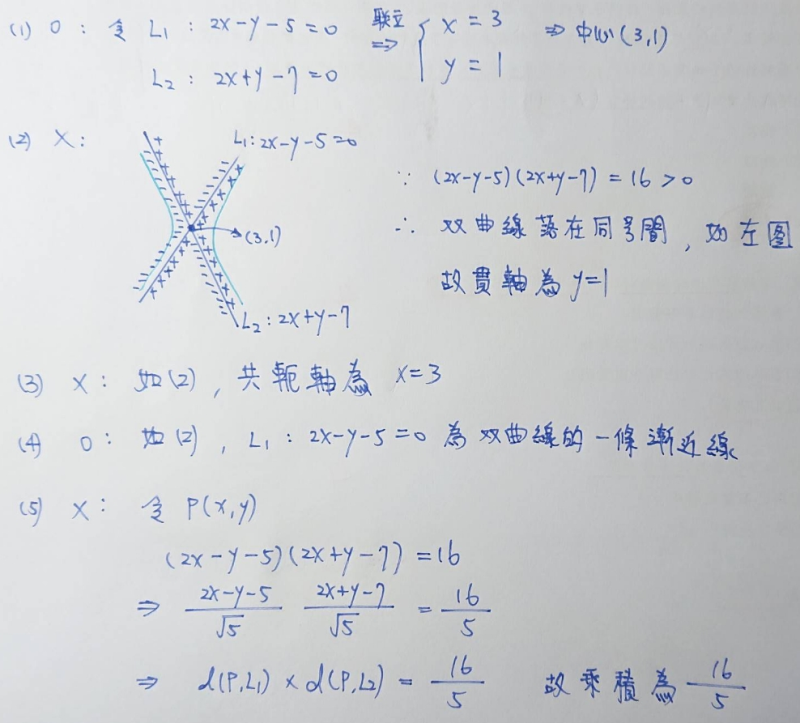 (1) O : 令 L₁ : 2x-y-5=0 聯立 ⇒ { x = 3 ⇒ 中心(3,1)
L₂ : 2x+y-7=0 y = 1
(2) X :
L₁: 2x-y-5=0
∵ (2x-y-5)(2x+y-7) = 16 > 0
(3,1)
∴ 双曲線落在同号間, 如左图
故貫軸為 y=1
L₂ : 2x+y-7
(3) X : 如(2), 共軛軸為 x=3
(4) O : 如(2), L₁ : 2x-y-5=0 為双曲線的一條漸近線
(5) X : 令 P(x,y)
(2x-y-5)(2x+y-7) = 16
⇒ (2x-y-5)/√5 (2x+y-7)/√5 = 16/5
⇒ d(P,L₁) × d(P,L₂) = 16/5 故乘積為 16/5